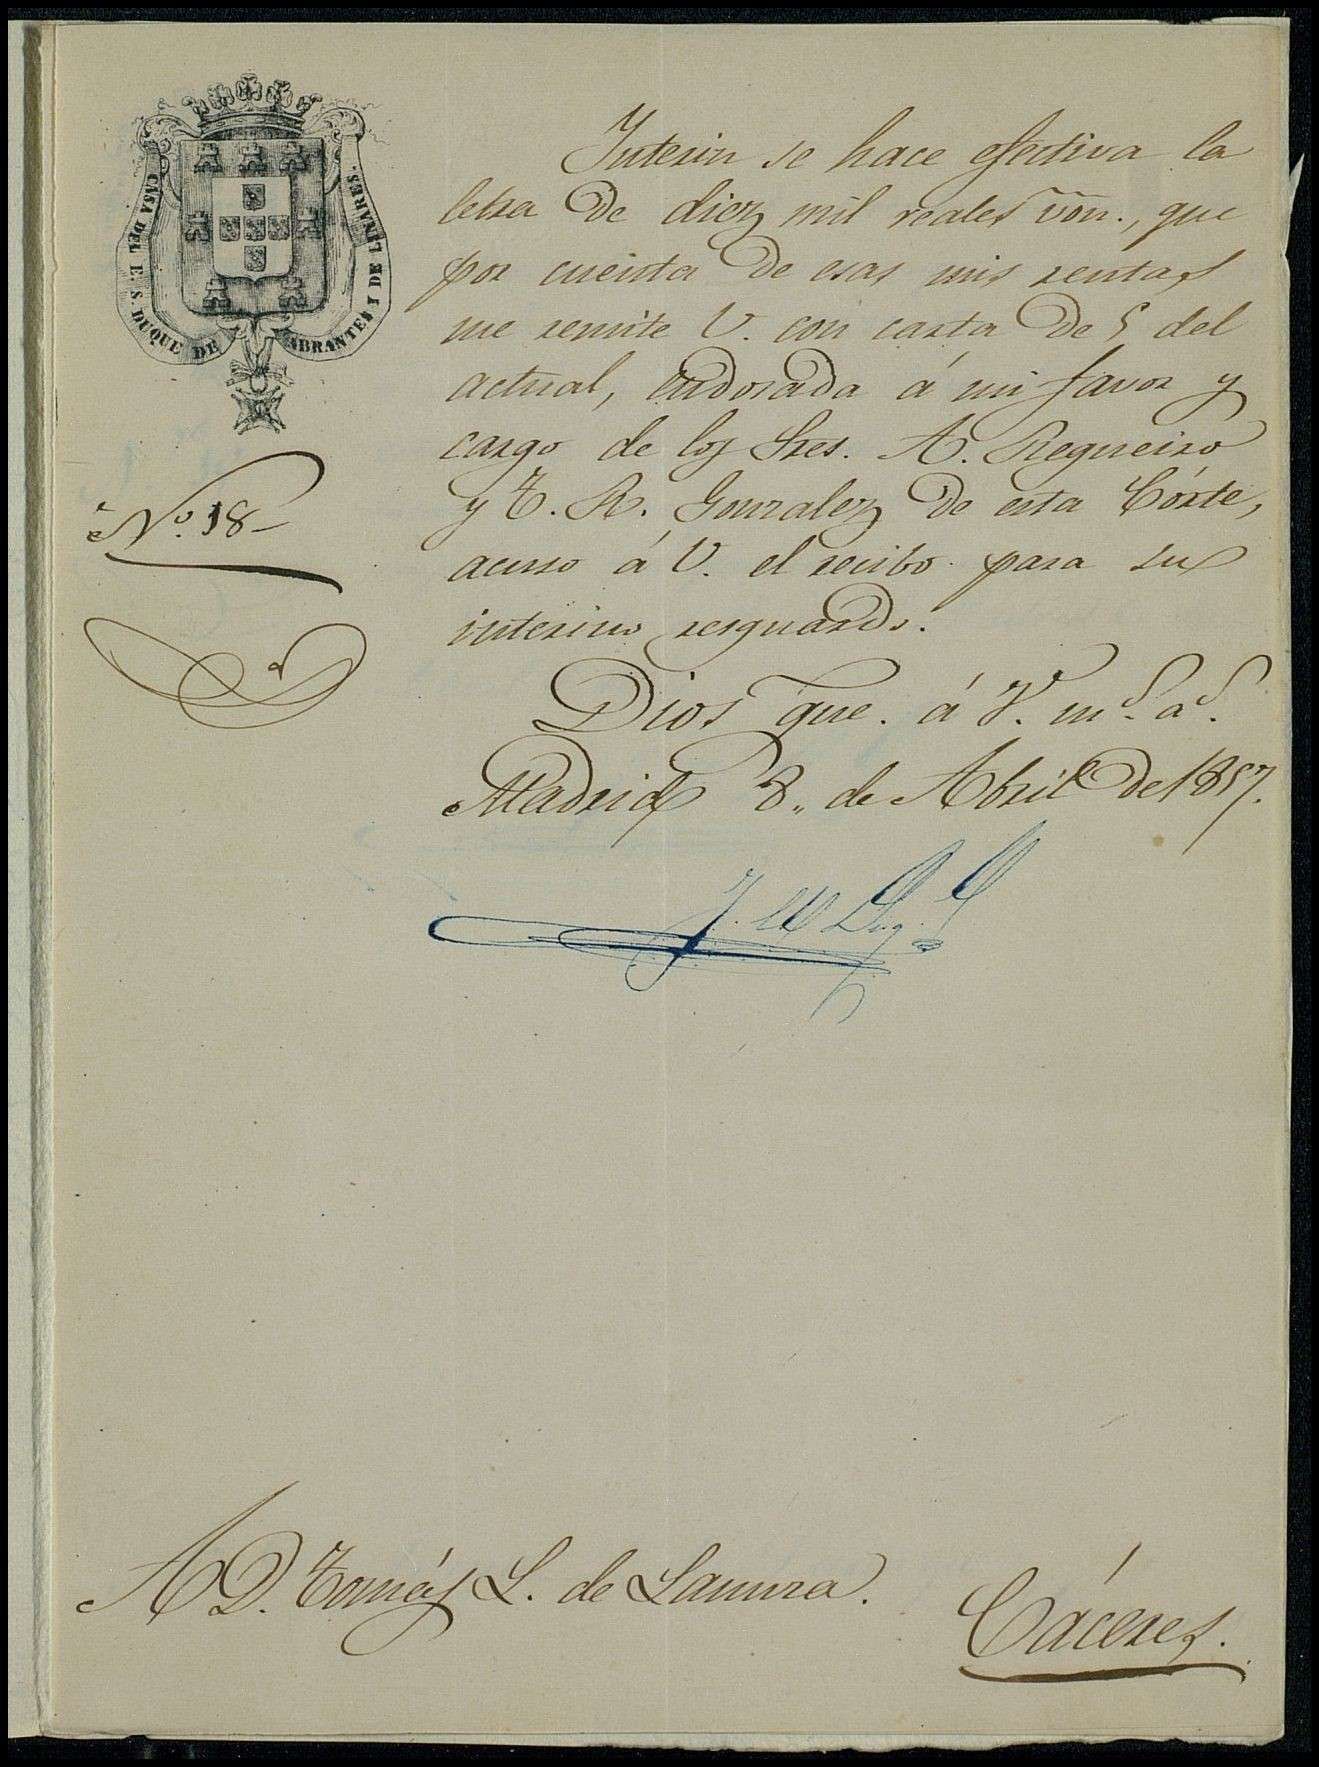 CASA DEL E. S. DUQUE DE ABRANTES Y DE LINARES.
Interin se hace efectiva la
letra de diez mil reales vón., que
por cuenta de esas mis rentas
me remite V. con carta de 5 del
actual, endosada á mi favor y
cargo de los Sres. A. Regueiro
y T. R. Gonzalez de esta Córte,
acuso á V. el recibo para su
interino resguardo.
Nº. 18
Dios gue. á V. ms. as.
Madrid 8 de Abril de 1857.
A D. Tomás L. de Sanura.
Cáceres.